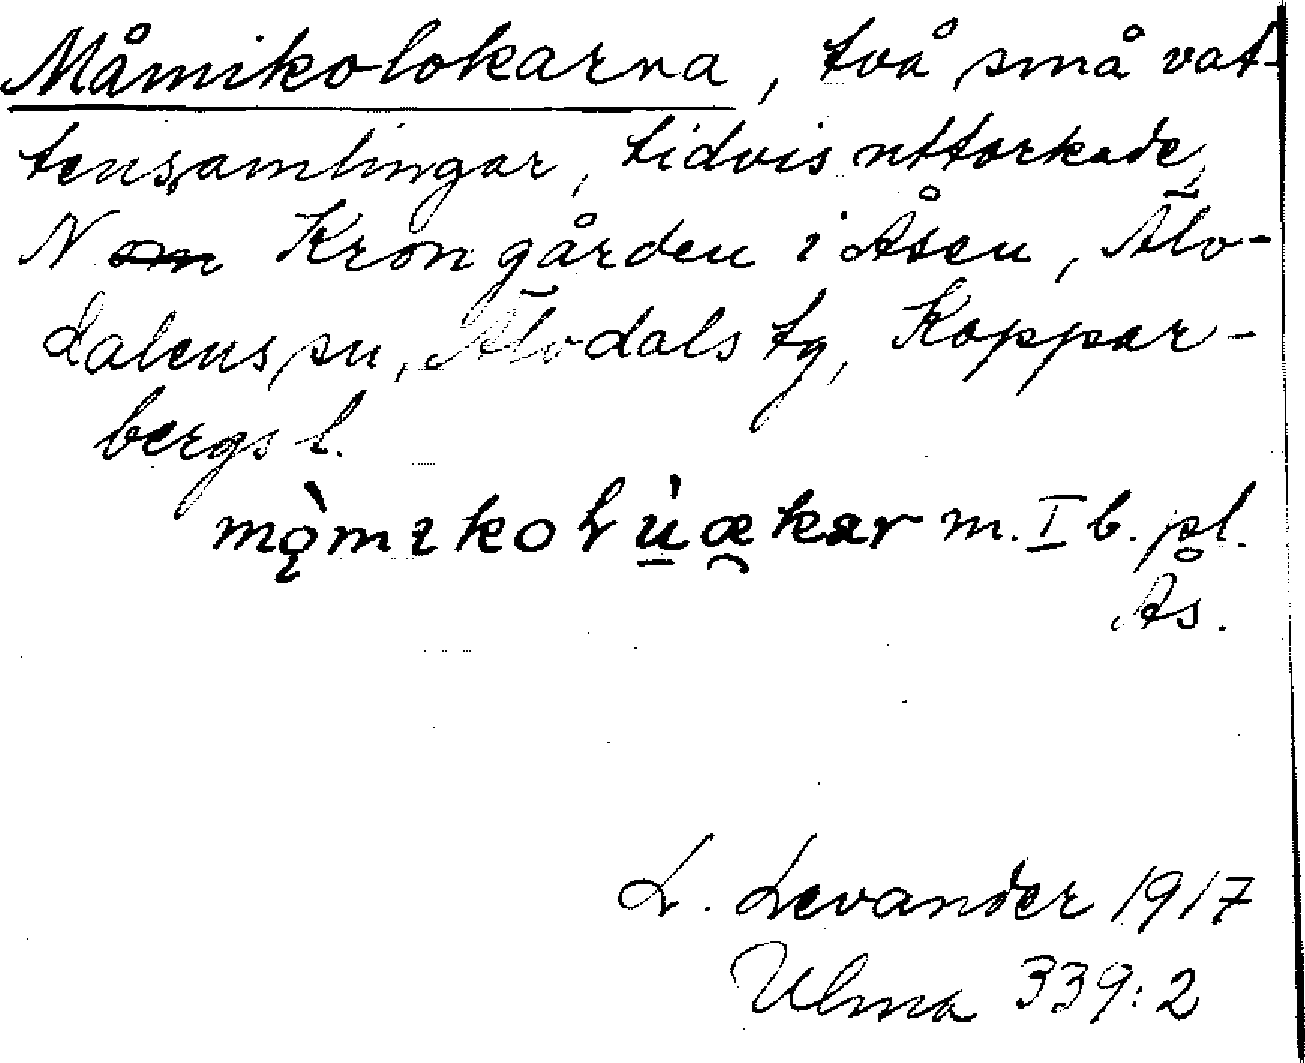 Måmikolokarna, två små vat-
tensamlingar, tidvis uttorkade,
N om Krongården i Åsen, Älv-
dalens sn, Älvdals tg, Koppar-
bergs l.
mǫ̀mıkoLu̠̇æ̯kar m. I b. pl.
Ås.
L. Levander 1917
Ulma 339:2